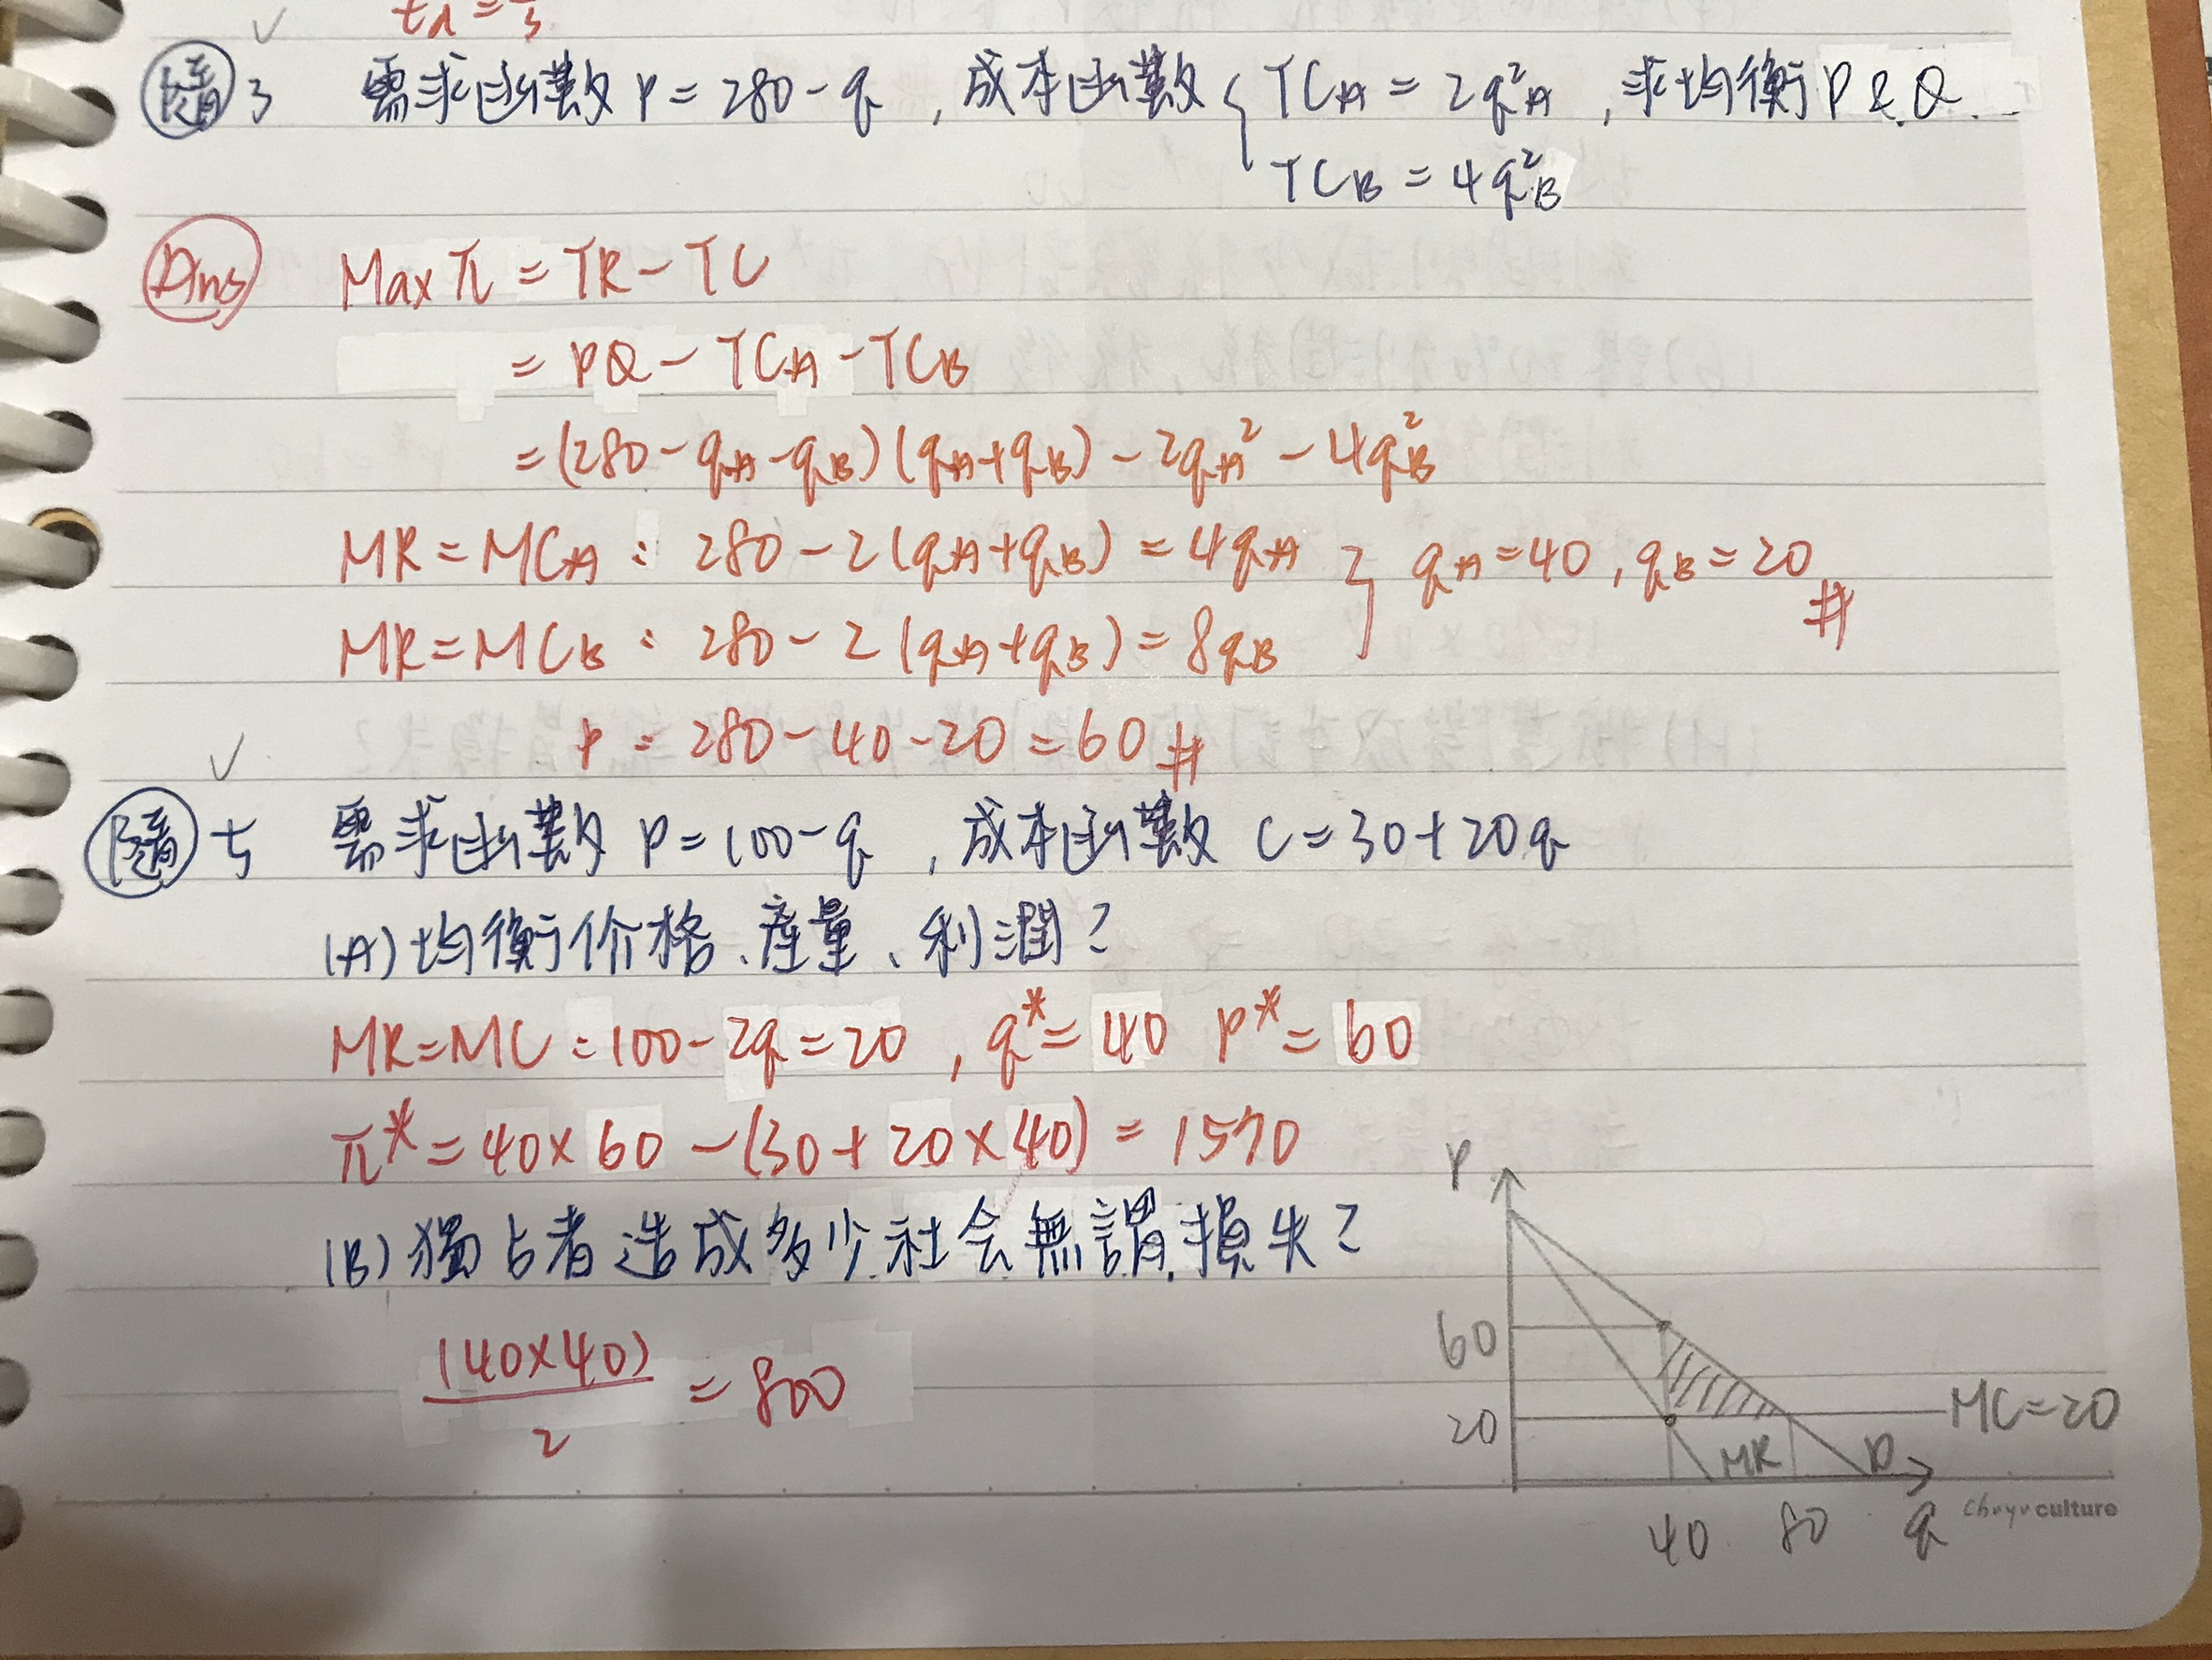 隨3 需求函數 P = 280 - q , 成本函數 { TCA = 2q²A , 求均衡 P & Q.
TCB = 4q²B
Ans Max π = TR - TC
= PQ - TCA - TCB
= (280 - qA - qB) (qA + qB) - 2qA² - 4q²B
MR = MCA : 280 - 2 (qA + qB) = 4qA } qA = 40 , qB = 20 #
MR = MCB : 280 - 2 (qA + qB) = 8qB
P = 280 - 40 - 20 = 60 #
隨5 需求函數 P = 100 - q , 成本函數 C = 30 + 20q
(A) 均衡价格、產量、利潤?
MR = MC : 100 - 2q = 20 , q* = 40 P* = 60
π* = 40 x 60 - (30 + 20 x 40) = 1570
(B) 獨占者造成多少社会無謂損失?
(40 x 40)
2
= 800
P
60
20
MC = 20
MR
D
40
80
q
culture